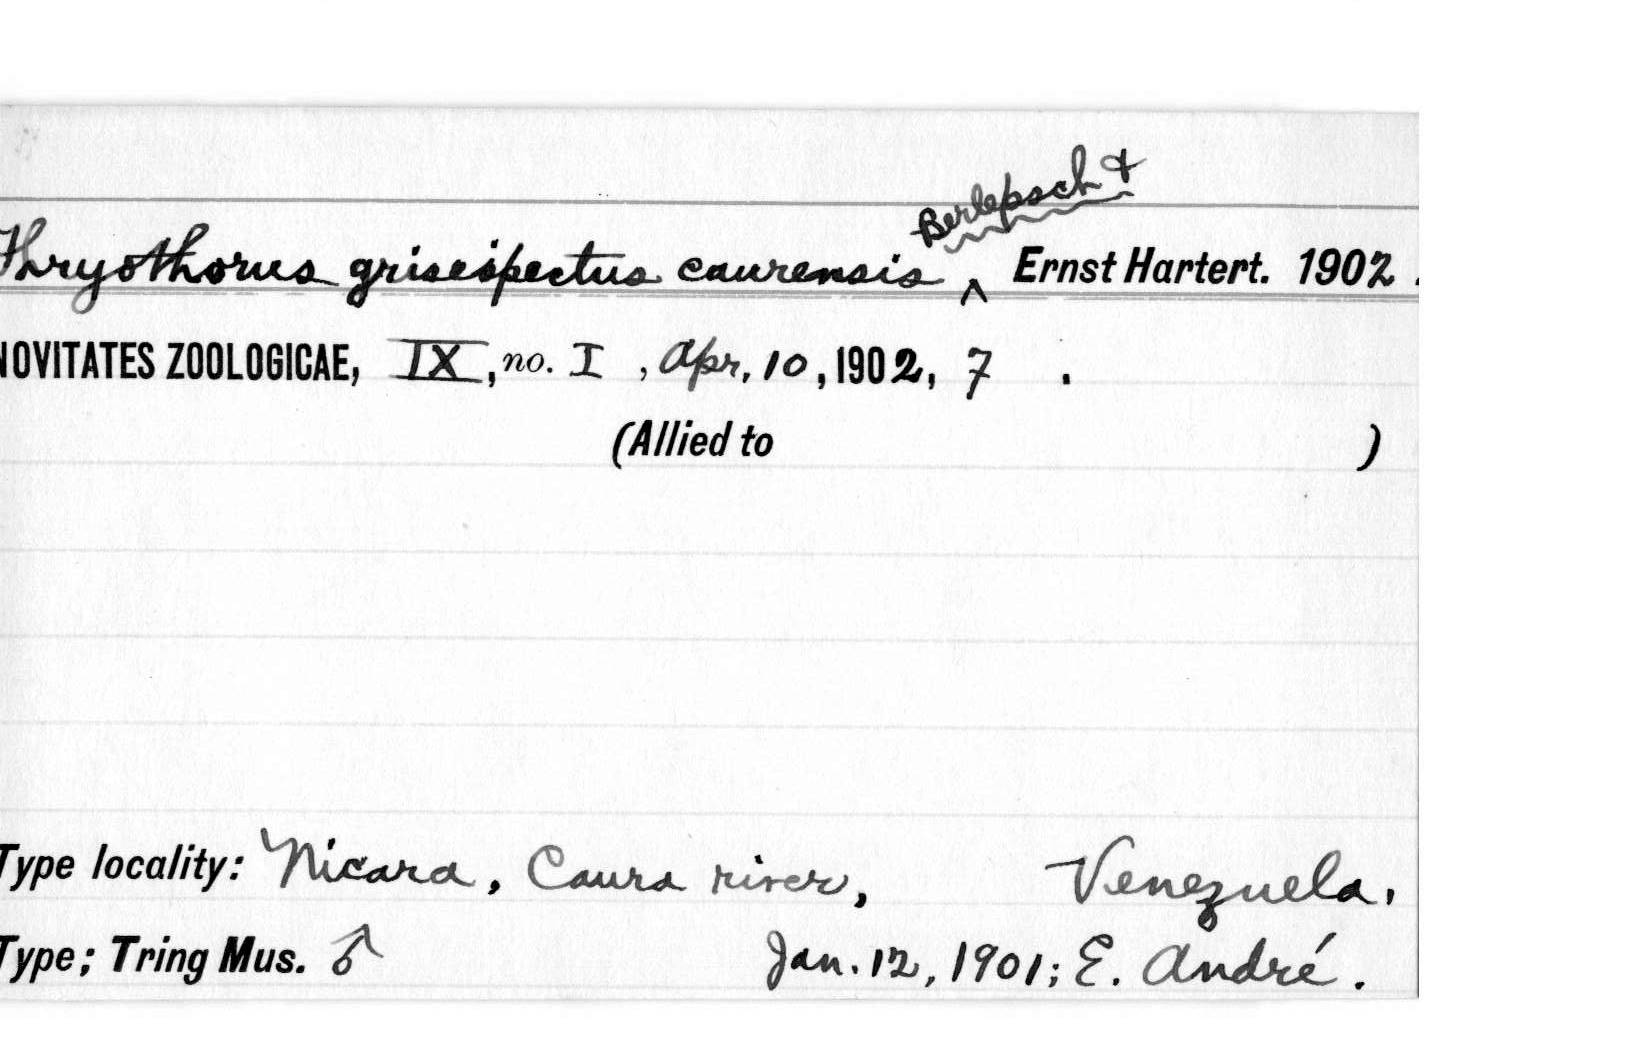 Berlepsch &
Thryothorus griseipectus caurensis ^ Ernst Hartert. 1902.
NOVITATES ZOOLOGICAE, IX, no. I, Apr, 10, 1902, 7.
(Allied to )
Type locality: Nicara, Caura river, Venezuela.
Type; Tring Mus. ♂ Jan. 12, 1901; E. André.